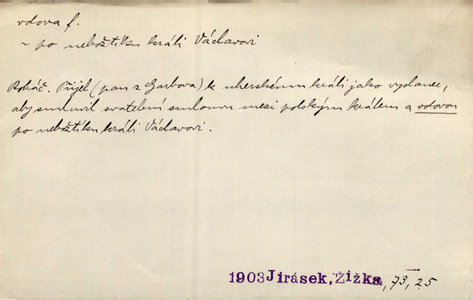 vdova f.
~ po nebožtíku králi Václavovi
Roháč. Přijel (pan z Garbova) k uherskému králi jako vyslanec,
aby smluvil svatební smlouvu mezi polským králem a vdovou
po nebožtíku králi Václavovi.
1903 Jirásek, Žižka, 73, 25